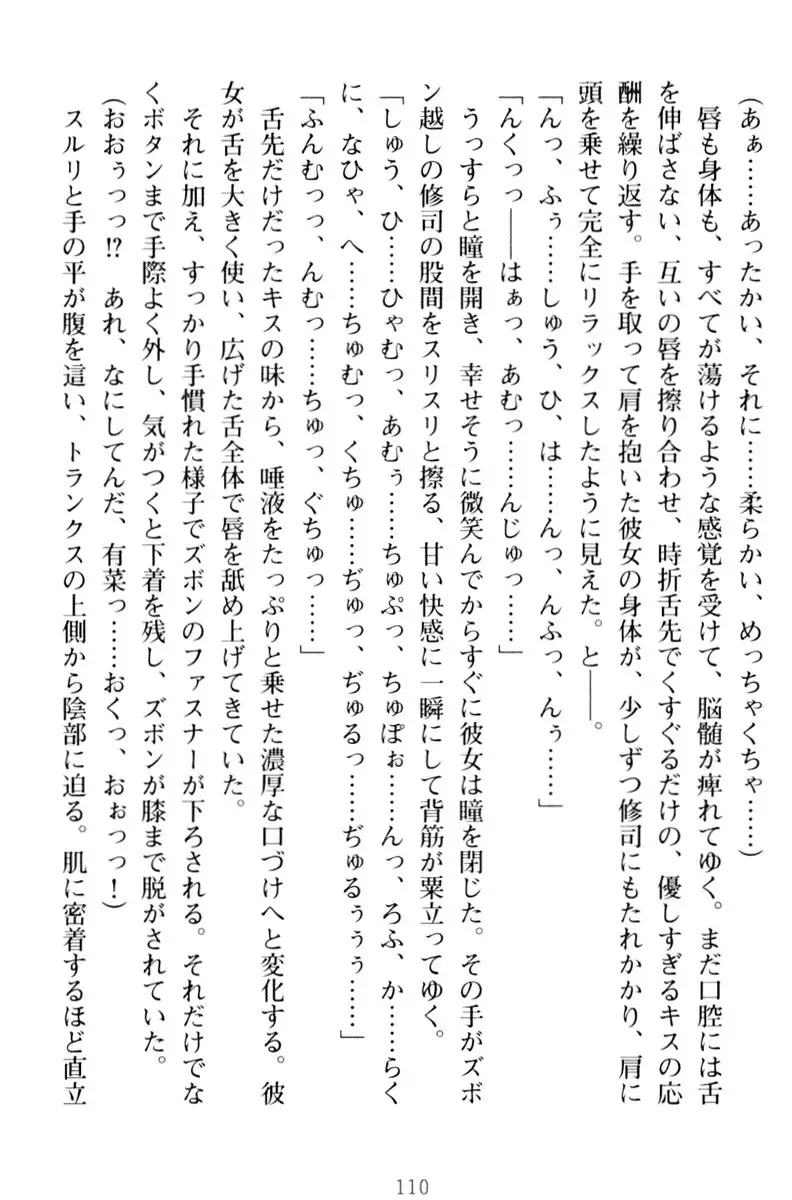 (あぁ……あったかい、それに……柔らかい、めっちゃくちゃ……)
唇も身体も、すべてが蕩けるような感覚を受けて、脳髄が痺れてゆく。まだ口腔には舌
を伸ばさない、互いの唇を擦り合わせ、時折舌先でくすぐるだけの、優しすぎるキスの応
酬を繰り返す。手を取って肩を抱いた彼女の身体が、少しずつ修司にもたれかかり、肩に
頭を乗せて完全にリラックスしたように見えた。と――。
「んっ、ふぅ……しゅう、ひ、は……んっ、んふっ、んぅ……」
「んくっっ――はぁっ、あむっ……んじゅっ……」
うっすらと瞳を開き、幸せそうに微笑んでからすぐに彼女は瞳を閉じた。その手がズボ
ン越しの修司の股間をスリスリと擦る、甘い快感に一瞬にして背筋が粟立ってゆく。
「しゅう、ひ……ひゃむっ、あむぅ……ちゅぷっ、ちゅぽぉ……んっ、ろふ、か……らく
に、なひゃ、へ……ちゅむっ、くちゅ……ぢゅっ、ぢゅるっ……ぢゅるぅぅぅ……」
「ふんむっっ、んむっ……ちゅっ、ぐちゅっ……」
舌先だけだったキスの味から、唾液をたっぷりと乗せた濃厚な口づけへと変化する。彼
女が舌を大きく使い、広げた舌全体で唇を舐め上げてきていた。
それに加え、すっかり手慣れた様子でズボンのファスナーが下ろされる。それだけでな
くボタンまで手際よく外し、気がつくと下着を残し、ズボンが膝まで脱がされていた。
(おおぅっっ!?　あれ、なにしてんだ、有菜っ……おくっ、おぉっっ！)
スルリと手の平が腹を這い、トランクスの上側から陰部に迫る。肌に密着するほど直立
110